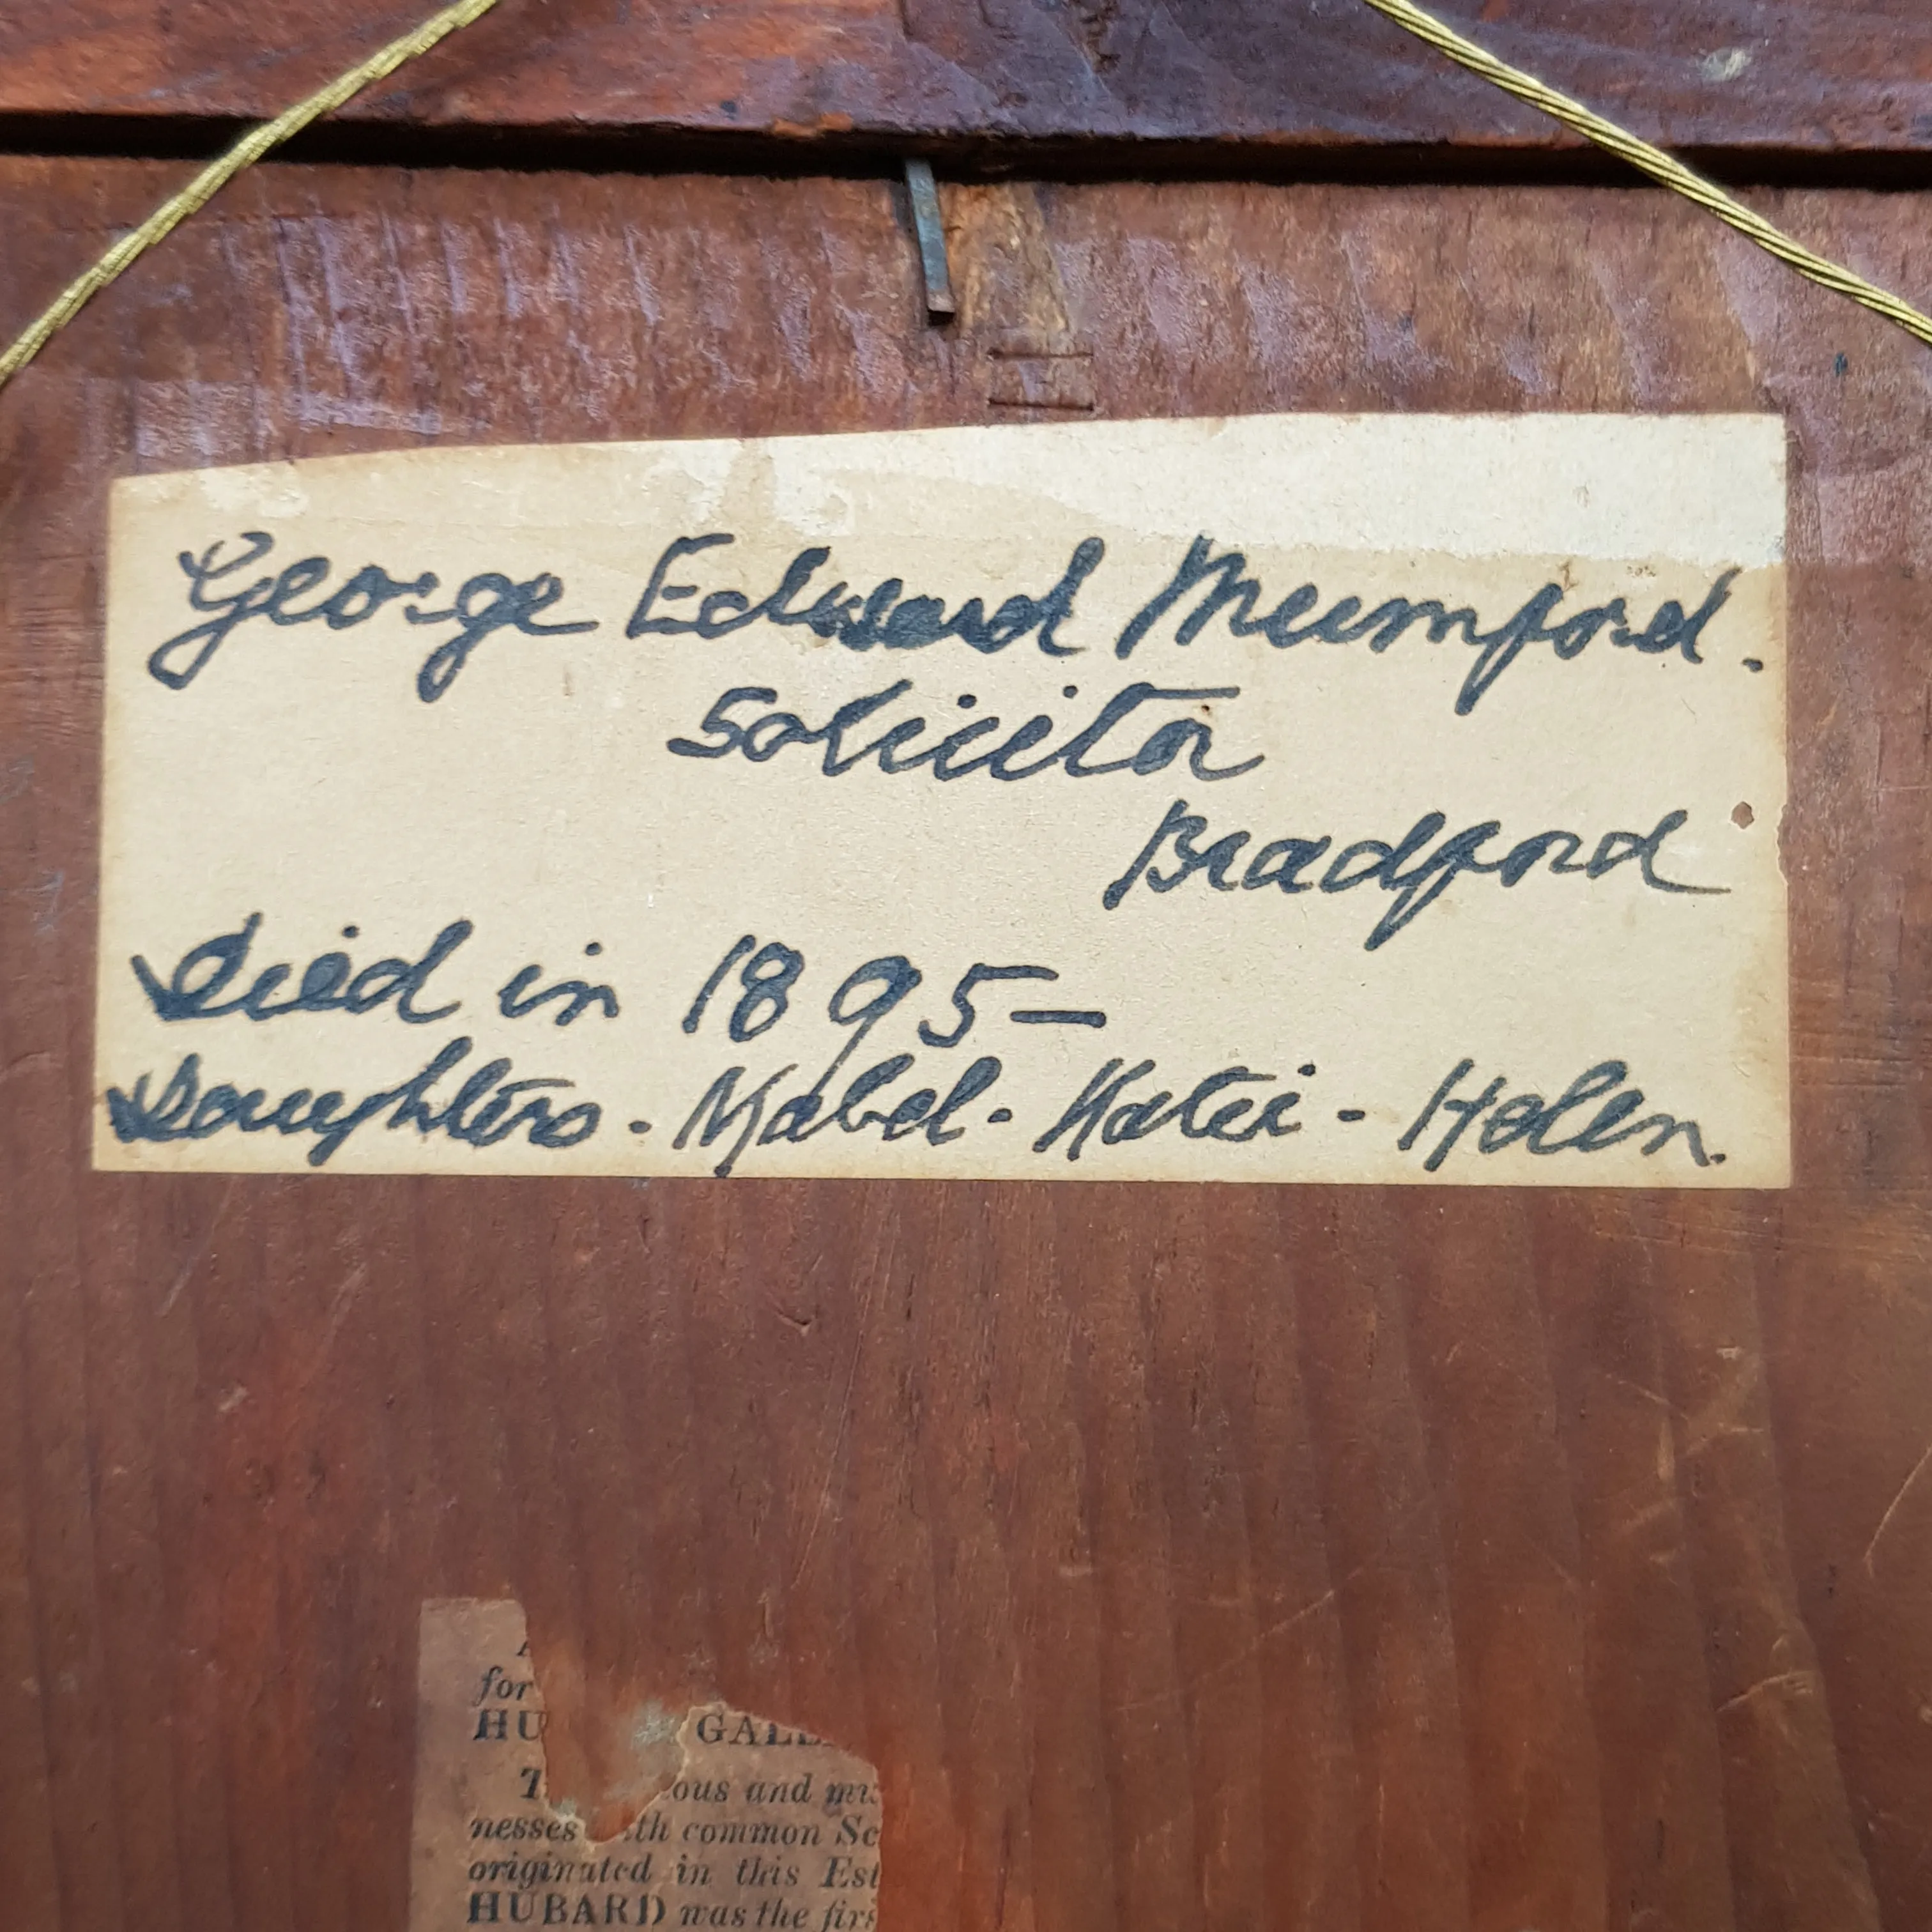 George Edward Mumford.
Solicitor
Bradford
Died in 1895—
Daughters - Mabel - Katie - Helen.
for
HU GALL
ous and mu
nesses ith common Sc
originated in this Est
HUBARD was the firs